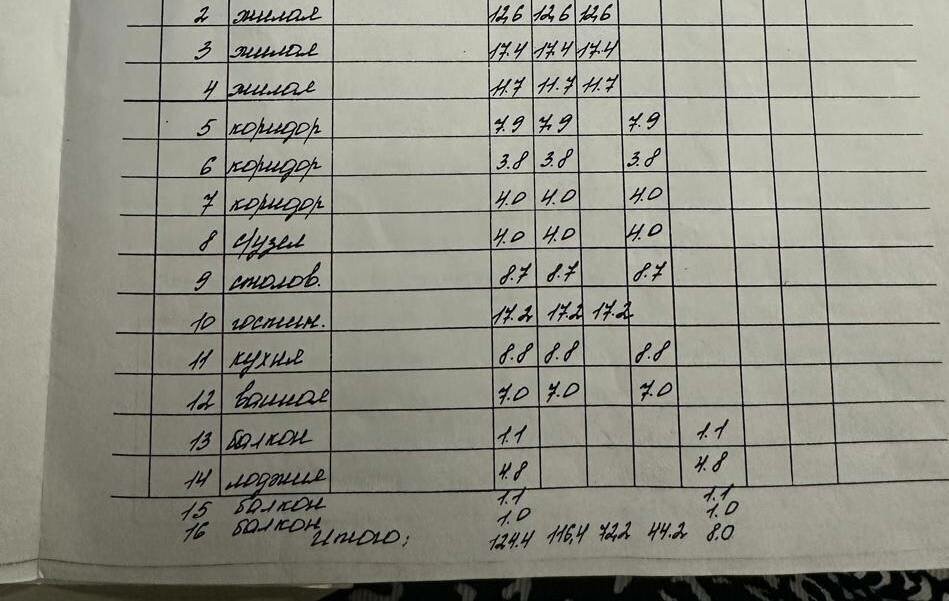 2 жилая 12,6 12,6 12,6
3 жилая 17.4 17.4 17.4
4 жилая 11.7 11.7 11.7
5 коридор 7.9 7.9 7.9
6 коридор 3.8 3.8 3.8
7 коридор 4.0 4.0 4.0
8 с/узел 4.0 4.0 4.0
9 столов. 8.7 8.7 8.7
10 гостин. 17.2 17.2 17.2
11 кухня 8.8 8.8 8.8
12 ванная 7.0 7.0 7.0
13 балкон 1.1 1.1
14 лоджия 4.8 4.8
15 балкон 1.1 1.1
16 балкон 1.0 1.0
Итого: 124.4 116,4 72,2 44.2 8.0